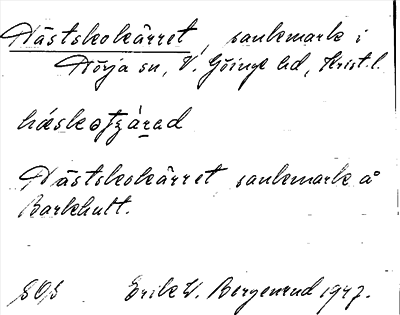 Hästskokärret, sankmark i
Röja sn, V. Göinge hd, Krist. l.
hásko tzárad
Hästskokärret sankmark å
Barkhult.
SOS Erik W. Bergenrud 1947.